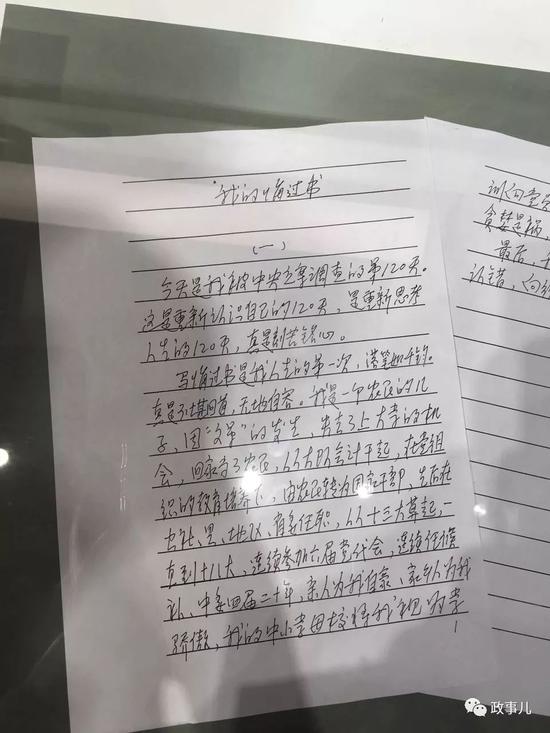 "我的悔过书"
(一)
今天是我被中央立案调查的第120天。
这是重新认识自己的120天，是重新思考
人生的120天，真是刻苦铭心。
写悔过书是我人生的第一次，落笔如千钧，
真是不堪回首，无地自容。我是一个农民的儿
子，因"文革"的发生，失去了上大学的机
会，回家当了农民，从大队会计干起，在党组
织的教育培养下，由农民转为国家干部，先后在
公社、县、地区、省委任职，从十三大算起，一
直到十八大，连续参加六届党代会，连续任候
补、中委四届二十年，亲人为我自豪、家乡人为我
骄傲，我的中小学母校将我视为学
1
向党
贪婪是祸
最后，
认错，向
政事儿